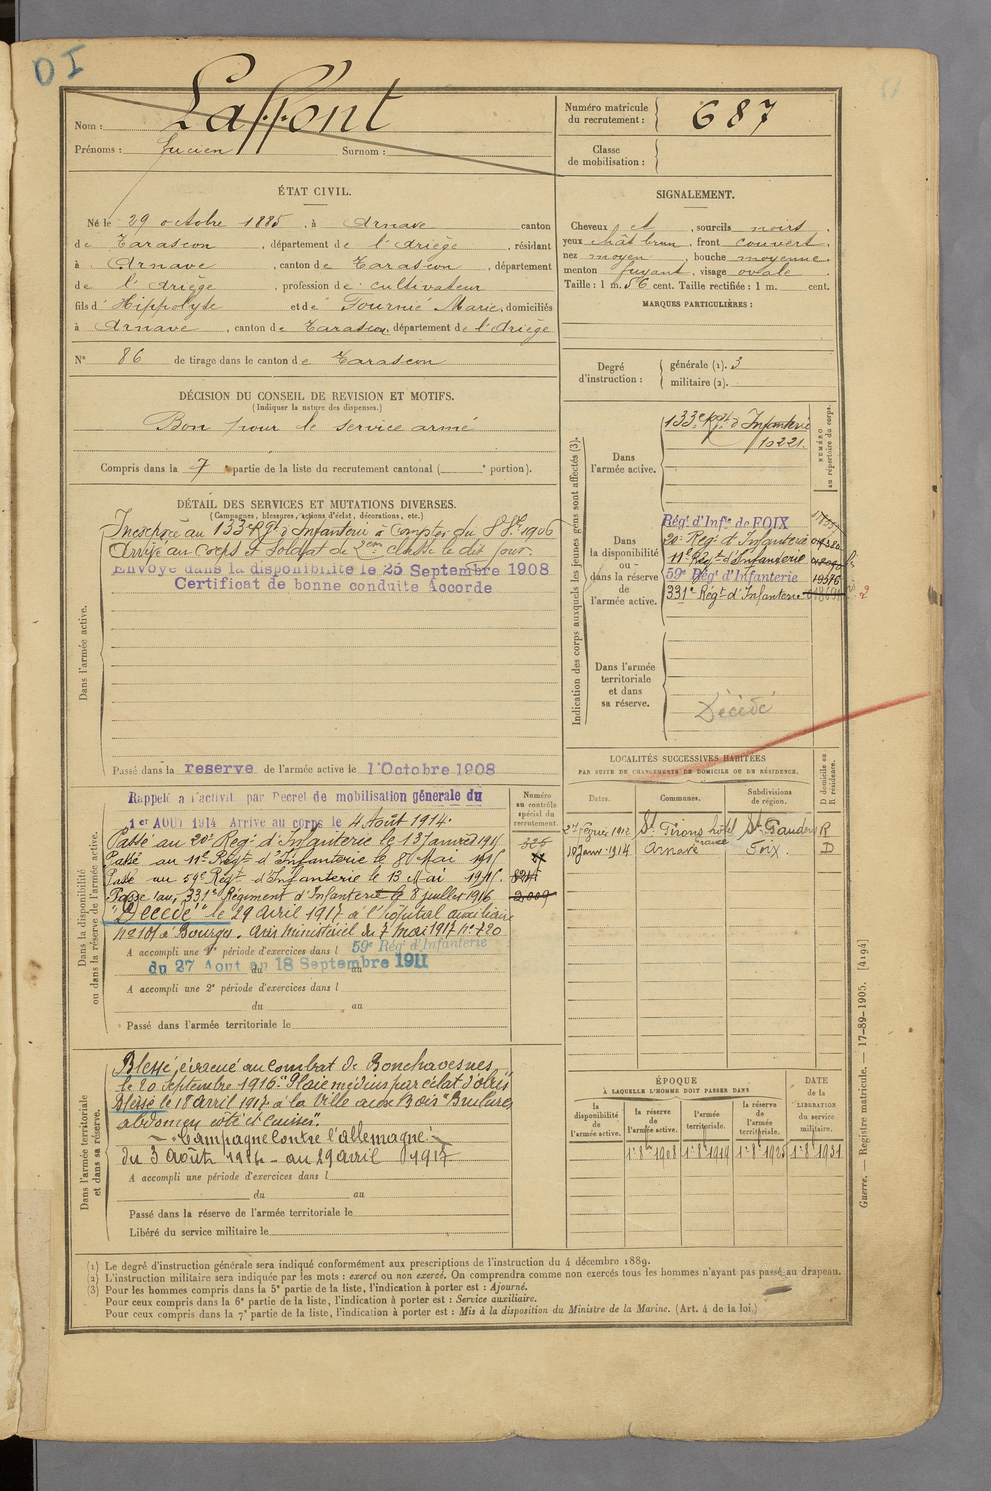 OI
Nom : Laffont
Prénoms : Lucien Surnom :
Numéro matricule du recrutement : 687
Classe de mobilisation :
ÉTAT CIVIL.
Né le 29 octobre 1885, à Arnave canton
de Tarascon, département de l'Ariège, résidant
à Arnave, canton de Tarascon, département
de l'Ariège, profession de cultivateur
fils d' Hippolyte et de Fournié Marie, domiciliés
à Arnave, canton de Tarascon, département de l'Ariège
N° 86 de tirage dans le canton de Tarascon
SIGNALEMENT.
Cheveux et, sourcils noirs,
yeux chât brun, front couvert,
nez moyen, bouche moyenne,
menton fuyant, visage ovale
Taille : 1 m. 56 cent. Taille rectifiée : 1 m. cent.
MARQUES PARTICULIÈRES :
Degré d'instruction : générale (1). 3
militaire (2).
DÉCISION DU CONSEIL DE REVISION ET MOTIFS.
(Indiquer la nature des dispenses.)
Bon pour le service armé
Compris dans la 7e partie de la liste du recrutement cantonal ( e portion).
DÉTAIL DES SERVICES ET MUTATIONS DIVERSES.
(Campagnes, blessures, actions d'éclat, décorations, etc.)
Dans l'armée active.
au 133e Rgt d'Infanterie à compter du 8 8bre 1906
Arrivé au corps et Soldat de 2ème classe le dit jour.
Envoyé dans la disponibilité le 25 Septembre 1908
Certificat de bonne conduite Accordé
Passé dans la reserve de l'armée active le 1 Octobre 1908
Indication des corps auxquels les jeunes gens sont affectés (3).
NUMÉRO au répertoire du corps.
Dans l'armée active.
133e Rgt d'Infanterie
10221.
Dans la disponibilité ou dans la réserve de l'armée active.
Régt d'Infie de FOIX
20e Régt d'Infanterie
11e Régt d'Infanterie
59e Régt d'Infanterie 19596
331e Régt d'Infanterie
Dans l'armée territoriale et dans sa réserve.
Décédé
Dans la disponibilité ou dans la réserve de l'armée active.
Numéro au contrôle spécial du recrutement.
Rappelé a l'activit. par Decret de mobilisation génerale du
1er AOUT 1914 Arrivé au corps le 4 Août 1914.
Passé au 20e Régt d'Infanterie le 13 janvier 1915
Passé au 11e Régt d'Infanterie le 8 Mai 1915
Passé au 59e Régt d'Infanterie le 13 Mai 1915.
Passé au 331e Régiment d'Infanterie le 8 juillet 1916
"Décédé" le 29 avril 1917 à l'hôpital auxiliaire
n° 101 à Bourges. Avis ministériel du 7 mai 1917 n°
A accompli une 1e période d'exercices dans l 59e Régt d'Infanterie
du 27 Aout au 18 Septembre 1911
A accompli une 2e période d'exercices dans l
du au
Passé dans l'armée territoriale le
LOCALITÉS SUCCESSIVES HABITÉES
PAR SUITE DE CHANGEMENTS DE DOMICILE OU DE RÉSIDENCE.
Dates. Communes. Subdivisions de région. D domicile ou R résidence.
1912 St Girons hôtel St Gaudens R
10 Janv. 1914 Arnave Foix. D
Dans l'armée territoriale et dans sa réserve.
Blessé, évacué au combat de Bouchavesnes
le 20 septembre 1916 "Plaie médius par éclat d'obus"
Blessé le 18 avril 1917 à la Ville aux Bois "Brulures
abdomen côté et cuisses".
Campagne contre l'Allemagne :
du 3 août 1914 - au 29 avril 1917
A accompli une période d'exercices dans l
du au
Passé dans la réserve de l'armée territoriale le
Libéré du service militaire le
ÉPOQUE
À LAQUELLE L'HOMME DOIT PASSER DANS
la disponibilité de l'armée active. la réserve de l'armée active. l'armée territoriale. la réserve de l'armée territoriale.
DATE de la LIBÉRATION du service militaire.
1er 8bre 1908 1er 8bre 1919 1er 8bre 1925 1er 8bre 1931
(1) Le degré d'instruction générale sera indiqué conformément aux prescriptions de l'instruction du 4 décembre 1889.
(2) L'instruction militaire sera indiquée par les mots : exercé ou non exercé. On comprendra comme non exercés tous les hommes n'ayant pas passé au drapeau.
(3) Pour les hommes compris dans la 5e partie de la liste, l'indication à porter est : Ajourné.
Pour ceux compris dans la 6e partie de la liste, l'indication à porter est : Service auxiliaire.
Pour ceux compris dans la 7e partie de la liste, l'indication à porter est : Mis à la disposition du Ministre de la Marine. (Art. 4 de la loi.)
Guerre. — Registre matricule. — 17-89-1905. [4194]